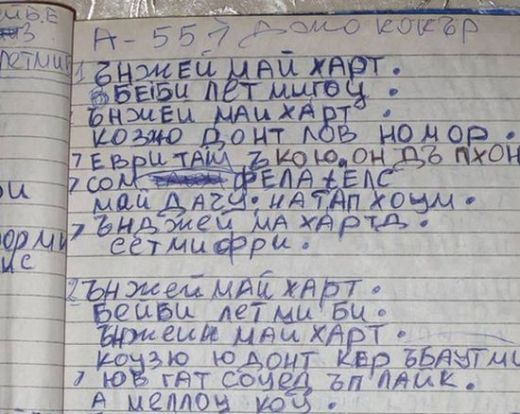 А-551 ДЖО КОКЪР
1 ЪНЖЕЙ МАЙ ХАРТ.
БЕЙБИ ЛЕТ МИ ГОУ.
ЪНЖЕЙ МАЙ ХАРТ.
КОЗЮ ДОНТ ЛОВ НО МОР.
ЕВРИ ТАЙМ Ъ КОЮ.ОН ДЪ ПХОН
СОМ ФЕЛА ЕЛС
МАЙ ДАГУ.НАТ АП ХОУМ.
ЪНДЖЕЙ МА ХАРТД.
СЕТ МИ ФРИ.
2 ЪНЖЕЙ МАЙ ХАРТ.
БЕЙБИ ЛЕТ МИ БИ.
ЪНЖЕЙН МАЙ ХАРТ.
КОУЗЮ Ю ДОНТ КЕР ЪБАУТ МИ
ЮВ ГАТ СОУЕД ЪП ЛАЙК.
А МЕЛЛОУ КОУ.